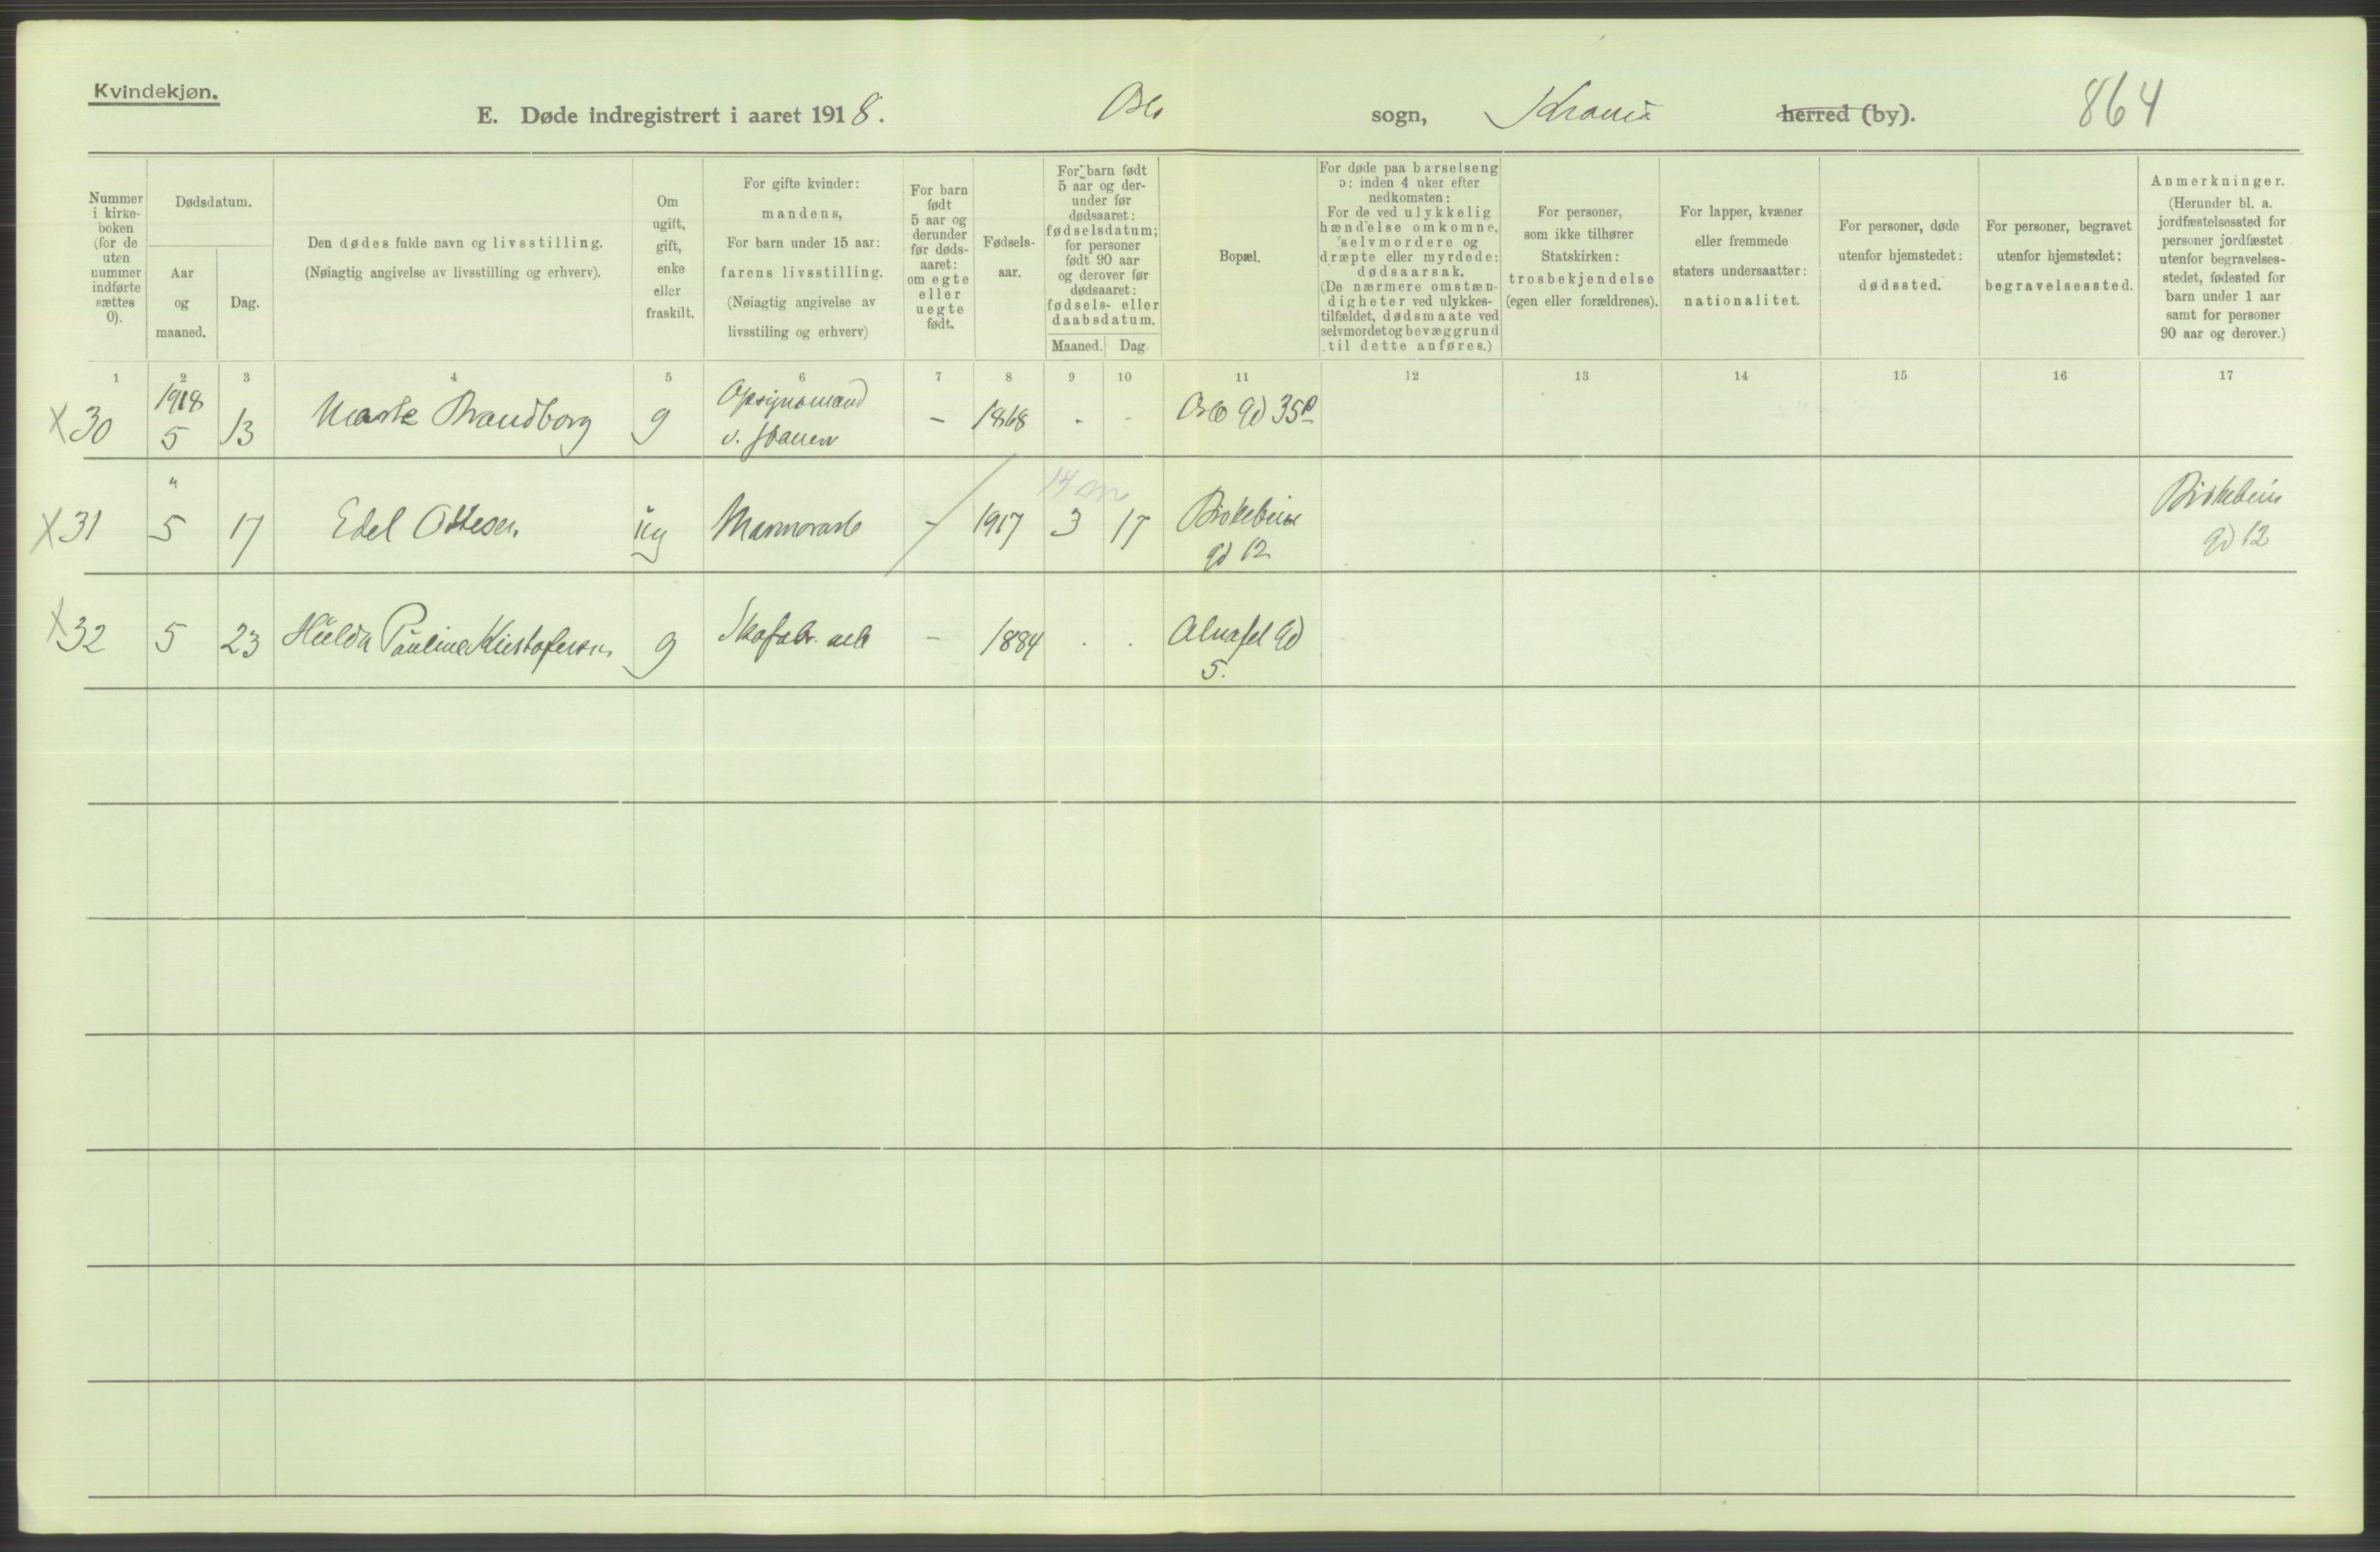 Kvindekjøn.
E. Døde indregistrert i aaret 1918. Oslo sogn, Krania herred (by). 864
Nummer i kirke- boken (for de uten nummer indførte sættes 0).
Dødsdatum.
Aar og maaned.
Dag.
Den dødes fulde navn og livsstilling.
(Nøiagtig angivelse av livsstilling og erhverv).
Om ugift, gift, enke eller fraskilt.
For gifte kvinder:
mandens,
For barn under 15 aar:
farens livsstilling.
(Nøiagtig angivelse av
livsstiling og erhverv)
For barn født 5 aar og derunder før døds- aaret: om egte eller uegte født.
Fødsels- aar.
For barn født
5 aar og der-
under før
dødsaaret:
fødselsdatum;
for personer
født 90 aar
og derover før
dødsaaret:
fødsels- eller
daabsdatum.
Maaned. Dag.
Bopæl.
For døde paa barselseng
ɔ: inden 4 uker efter
nedkomsten:
For de ved ulykkelig
hændelse omkomne,
selvmordere og
dræpte eller myrdede:
dødsaarsak.
(De nærmere omstæn-
digheter ved ulykkes-
tilfældet, dødsmaate ved
selvmordet og bevæggrund
til dette anføres.)
For personer,
som ikke tilhører
Statskirken:
trosbekjendelse
(egen eller forældrenes).
For lapper, kvæner
eller fremmede
staters undersaatter:
nationalitet.
For personer, døde
utenfor hjemstedet:
dødssted.
For personer, begravet
utenfor hjemstedet:
begravelsessted.
Anmerkninger.
(Herunder bl. a.
jordfæstelsessted for
personer jordfæstet
utenfor begravelses-
stedet, fødested for
barn under 1 aar
samt for personer
90 aar og derover.)
1 2 3 4 5 6 7 8 9 10 11 12 13 14 15 16 17
X 30 1918 5 13 Marte Brandborg g Opsynsmand v. - 1868 - - Oslo gd 35
X 31 " 5 17 Edel Ottesen ug Marmorarb - 1917 3 17 Birkebein gd 12 Birkebein gd 12
14 m
X 32 5 23 Hulda Pauline Kristofersen g Skofabr. arb - 1884 . . Alnafet gd 5.